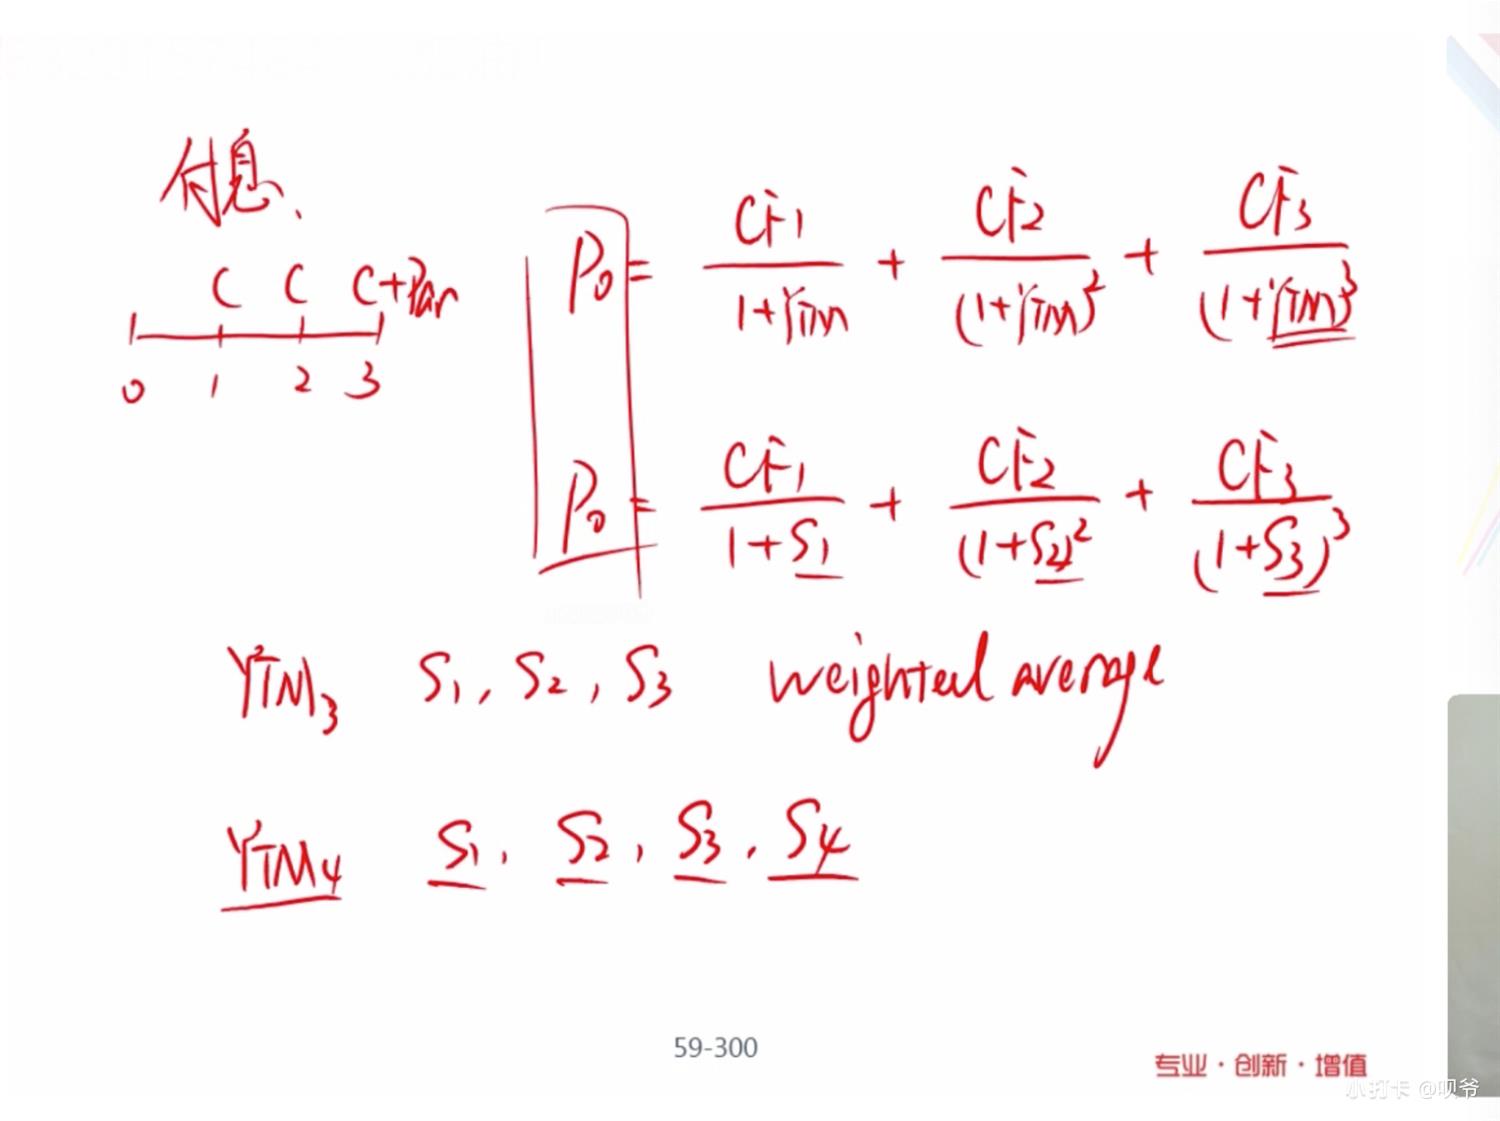 付息、
C C C+Par
0 1 2 3
P₀ = CF1/(1+YTM) + CF2/(1+YTM)² + CF3/(1+YTM)³
P₀ = CF1/(1+S1) + CF2/(1+S2)² + CF3/(1+S3)³
YTM3 S1, S2, S3 weighted average
YTM4 S1, S2, S3, S4
59-300
专业·创新·增值
小打卡 @呗爷